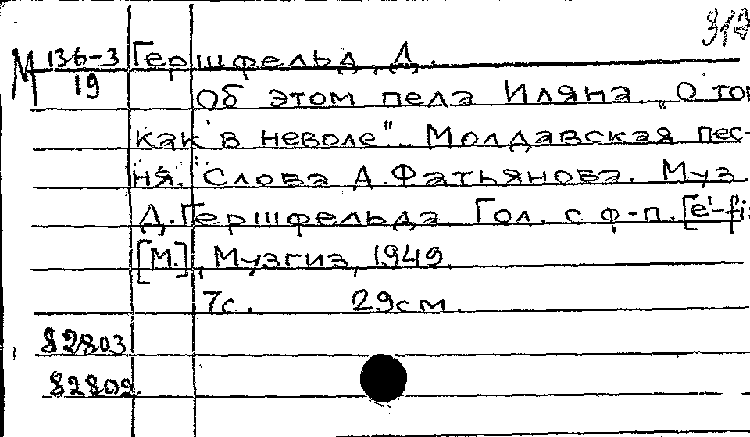 313
М 136-3 Гершфельд, Д.
19
Об этом пела Иляна. „О том
как в неволе". Молдавская пес-
ня. Слова А. Фатьянова. Муз.
Д. Гершфельда. Гол. с ф-п. [e'-fi
[М.], Музгиз, 1949.
7с. 29см.
82803
82809.